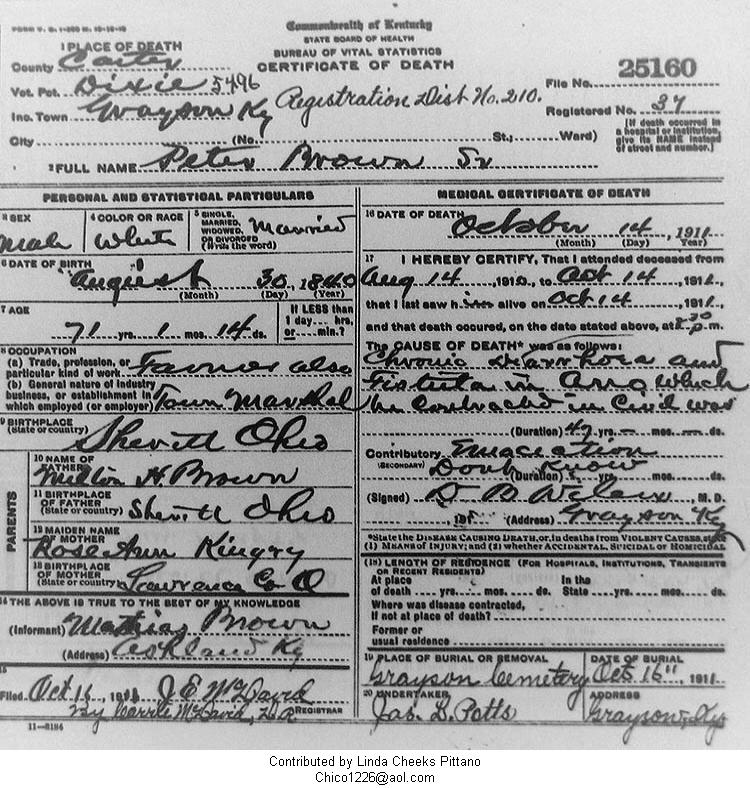 FORM V. S. 1-
Commonwealth of Kentucky
STATE BOARD OF HEALTH
BUREAU OF VITAL STATISTICS
CERTIFICATE OF DEATH
1 PLACE OF DEATH
County Carter
Vot. Pct. Dixie 5496
Inc. Town Grayson Ky
Registration Dist No. 210.
File No. 25160
Registered No. 37
City (No. St.; Ward)
[If death occurred in a hospital or institution, give its NAME instead of street and number.]
2 FULL NAME Peter Brown Sr
PERSONAL AND STATISTICAL PARTICULARS
3 SEX Male
4 COLOR OR RACE White
5 SINGLE, MARRIED, WIDOWED, OR DIVORCED (Write the word) Married
6 DATE OF BIRTH
August 30, 1840
(Month) (Day) (Year)
7 AGE
71 yrs. 1 mos. 14 ds.
If LESS than 1 day.... hrs, or.... min.?
8 OCCUPATION
(a) Trade, profession, or particular kind of work Farmer also
(b) General nature of industry business, or establishment in which employed (or employer) Town Marshal
9 BIRTHPLACE
(State or country) Ohio
PARENTS
10 NAME OF FATHER
Milton H. Brown
11 BIRTHPLACE OF FATHER
(State or country) Ohio
12 MAIDEN NAME OF MOTHER
Rose Ann Kingry
13 BIRTHPLACE OF MOTHER
(State or country) Lawrence Co O
14 THE ABOVE IS TRUE TO THE BEST OF MY KNOWLEDGE
(Informant) Mathias Brown
(Address) Ashland Ky
15
Filed Oct 16, 1911 J. E. McDavid
REGISTRAR
By Carrie McDavid, D. R.
11—3184
MEDICAL CERTIFICATE OF DEATH
16 DATE OF DEATH
October 14, 1911
(Month) (Day) Year)
17 I HEREBY CERTIFY, That I attended deceased from
Aug 14, 191, to Oct 14, 191,
that I last saw him alive on Oct 14, 1911,
and that death occured, on the date stated above, at 8 30 p.m.
The CAUSE OF DEATH* was as follows:
Chronic Diarrhoea and
Fistula in Ano which
he Contracted in Civil War
(Duration) 47 yrs. mos. ds.
Contributory Emaciation
(SECONDARY) Dont Know
(Duration) yrs. mos. ds.
(Signed) M. D.
, 191 (Address) Grayson Ky
*State the DISEASE CAUSING DEATH, or, in deaths from VIOLENT CAUSES, state
(1) MEANS OF INJURY; and (2) whether ACCIDENTAL, SUICIDAL or HOMICIDAL
(18) LENGTH OF RESIDENCE (FOR HOSPITALS, INSTITUTIONS, TRANSIENTS OR RECENT RESIDENTS)
At place of death yrs. mos. ds. In the State yrs. mos. ds.
Where was disease contracted,
If not at place of death?
Former or usual residence
19 PLACE OF BURIAL OR REMOVAL
Grayson Cemetery
DATE OF BURIAL
Oct. 16", 1911
20 UNDERTAKER
Jas. L. Potts
ADDRESS
Grayson, Ky
Contributed by Linda Cheeks Pittano
Chico1226@aol.com